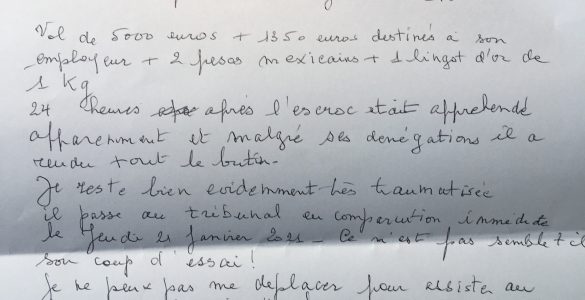 Vol de 5000 euros + 1350 euros destinés à son
employeur + 2 pesos mexicains + 1 lingot d'or de
1 Kg
24 heures après l'escroc était apprehendé
apparemment et malgré ses denégations il a
rendu tout le butin.
Je reste bien evidemment très traumatisée
il passe au tribunal en comparution immédiate
le Jeudi 21 Janvier 2021 - Ce n'est pas semble t il
son coup d'essai !
Je ne peux pas me deplacer pour assister au